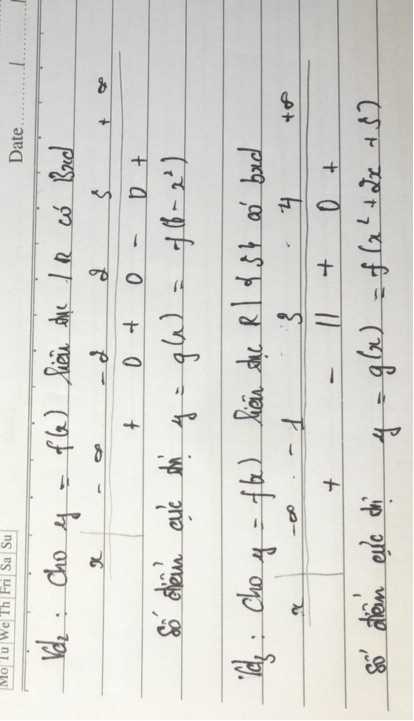 Mo Tu We Th Fri Sa Su
Date
Vd2 : Cho y = f(x) liên tục / R có Bxd
x -∞ -2 2 5 +∞
+ 0 + 0 - 0 +
Số điểm cực trị y = g(x) = f(6 - x²)
Vd3 : Cho y = f(x) liên tục R \ {3} có bxd
x -∞ -1 3 4 +∞
+ - || + 0 +
Số điểm cực trị y = g(x) = f(x² + 2x + 5)